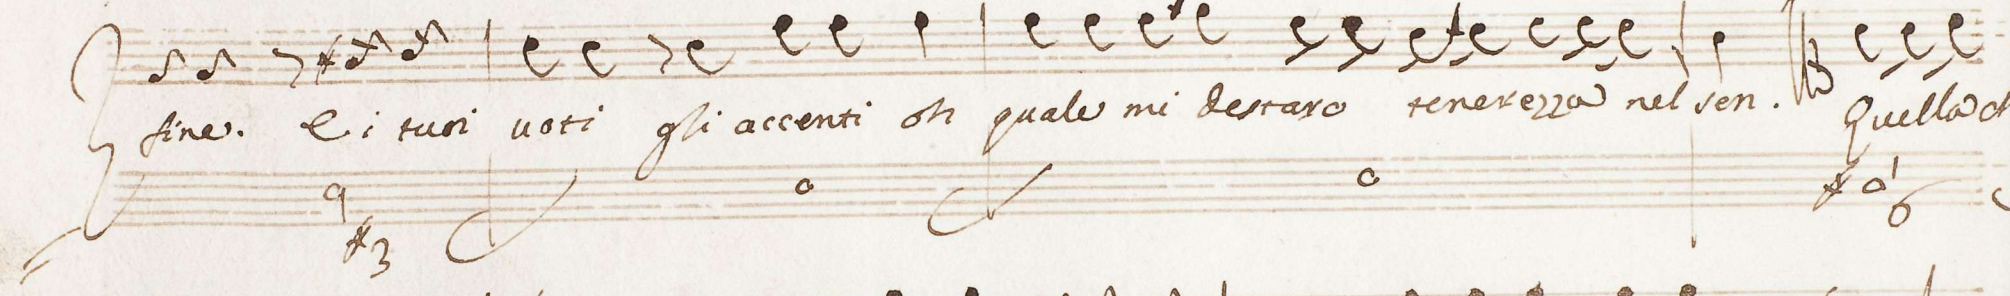 fine. E i tuoi uoti gli accenti oh quale mi destaro tenerezza nel sen. Quella ch